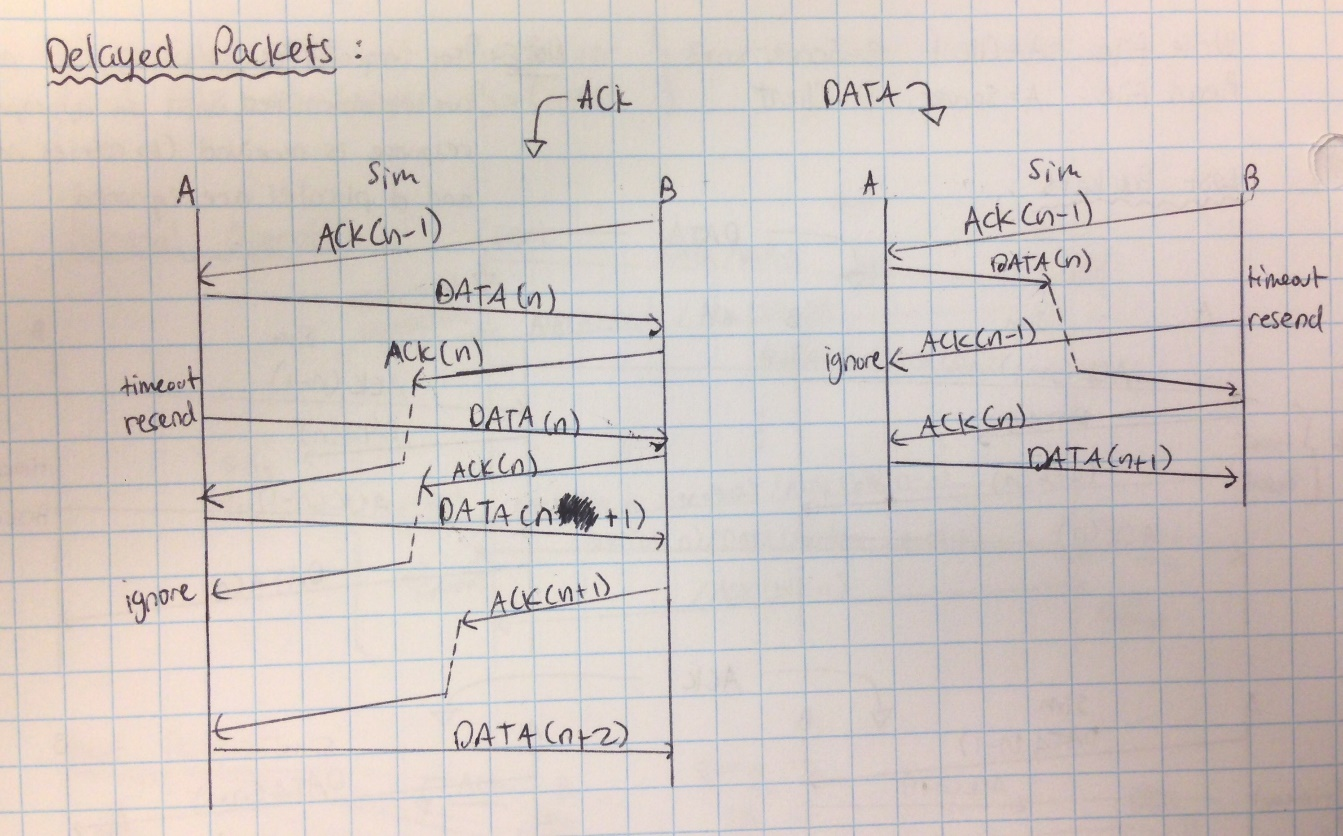 Delayed Packets:
ACK
A Sim B
ACK(n-1)
DATA(n)
ACK(n)
timeout
resend
DATA(n)
ACK(n)
DATA(n+1)
ignore
ACK(n+1)
DATA(n+2)
DATA
A Sim B
ACK(n-1)
DATA(n)
timeout
resend
ACK(n-1)
ignore
ACK(n)
DATA(n+1)